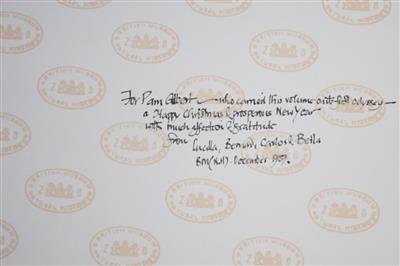 For Pam Gilbert — who carried this volume on its first Odyssey —
a Happy Christmas & prosperous New Year
with much affection & gratitude
from Lucilla, Bernard, Carlos & Bella
BM(NH). December 1989.
BRITISH MUSEUM
NATURAL HISTORY